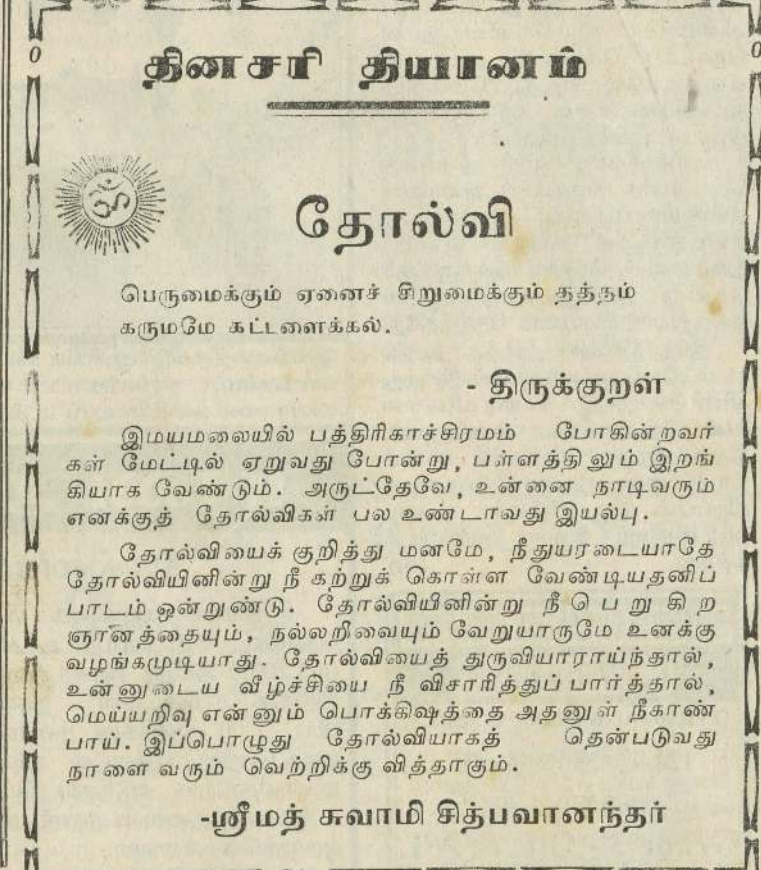 தினசரி தியானம்
ॐ
தோல்வி
பெருமைக்கும் ஏனைச் சிறுமைக்கும் தத்தம்
கருமமே கட்டளைக்கல்.
- திருக்குறள்
இமயமலையில் பத்திரிகாச்சிரமம் போகின்றவர்
கள் மேட்டில் ஏறுவது போன்று, பள்ளத்திலும் இறங்
கியாக வேண்டும். அருட்தேவே, உன்னை நாடிவரும்
எனக்குத் தோல்விகள் பல உண்டாவது இயல்பு.
தோல்வியைக் குறித்து மனமே, நீதுயரடையாதே
தோல்வியினின்று நீ கற்றுக் கொள்ள வேண்டியதனிப்
பாடம் ஒன்றுண்டு. தோல்வியினின்று நீ பெறுகிற
ஞானத்தையும், நல்லறிவையும் வேறுயாருமே உனக்கு
வழங்கமுடியாது. தோல்வியைத் துருவியாராய்ந்தால்,
உன்னுடைய வீழ்ச்சியை நீ விசாரித்துப் பார்த்தால்,
மெய்யறிவு என்னும் பொக்கிஷத்தை அதனுள் நீகாண்
பாய். இப்பொழுது தோல்வியாகத் தென்படுவது
நாளை வரும் வெற்றிக்கு வித்தாகும்.
-ஸ்ரீமத் சுவாமி சித்பவானந்தர்